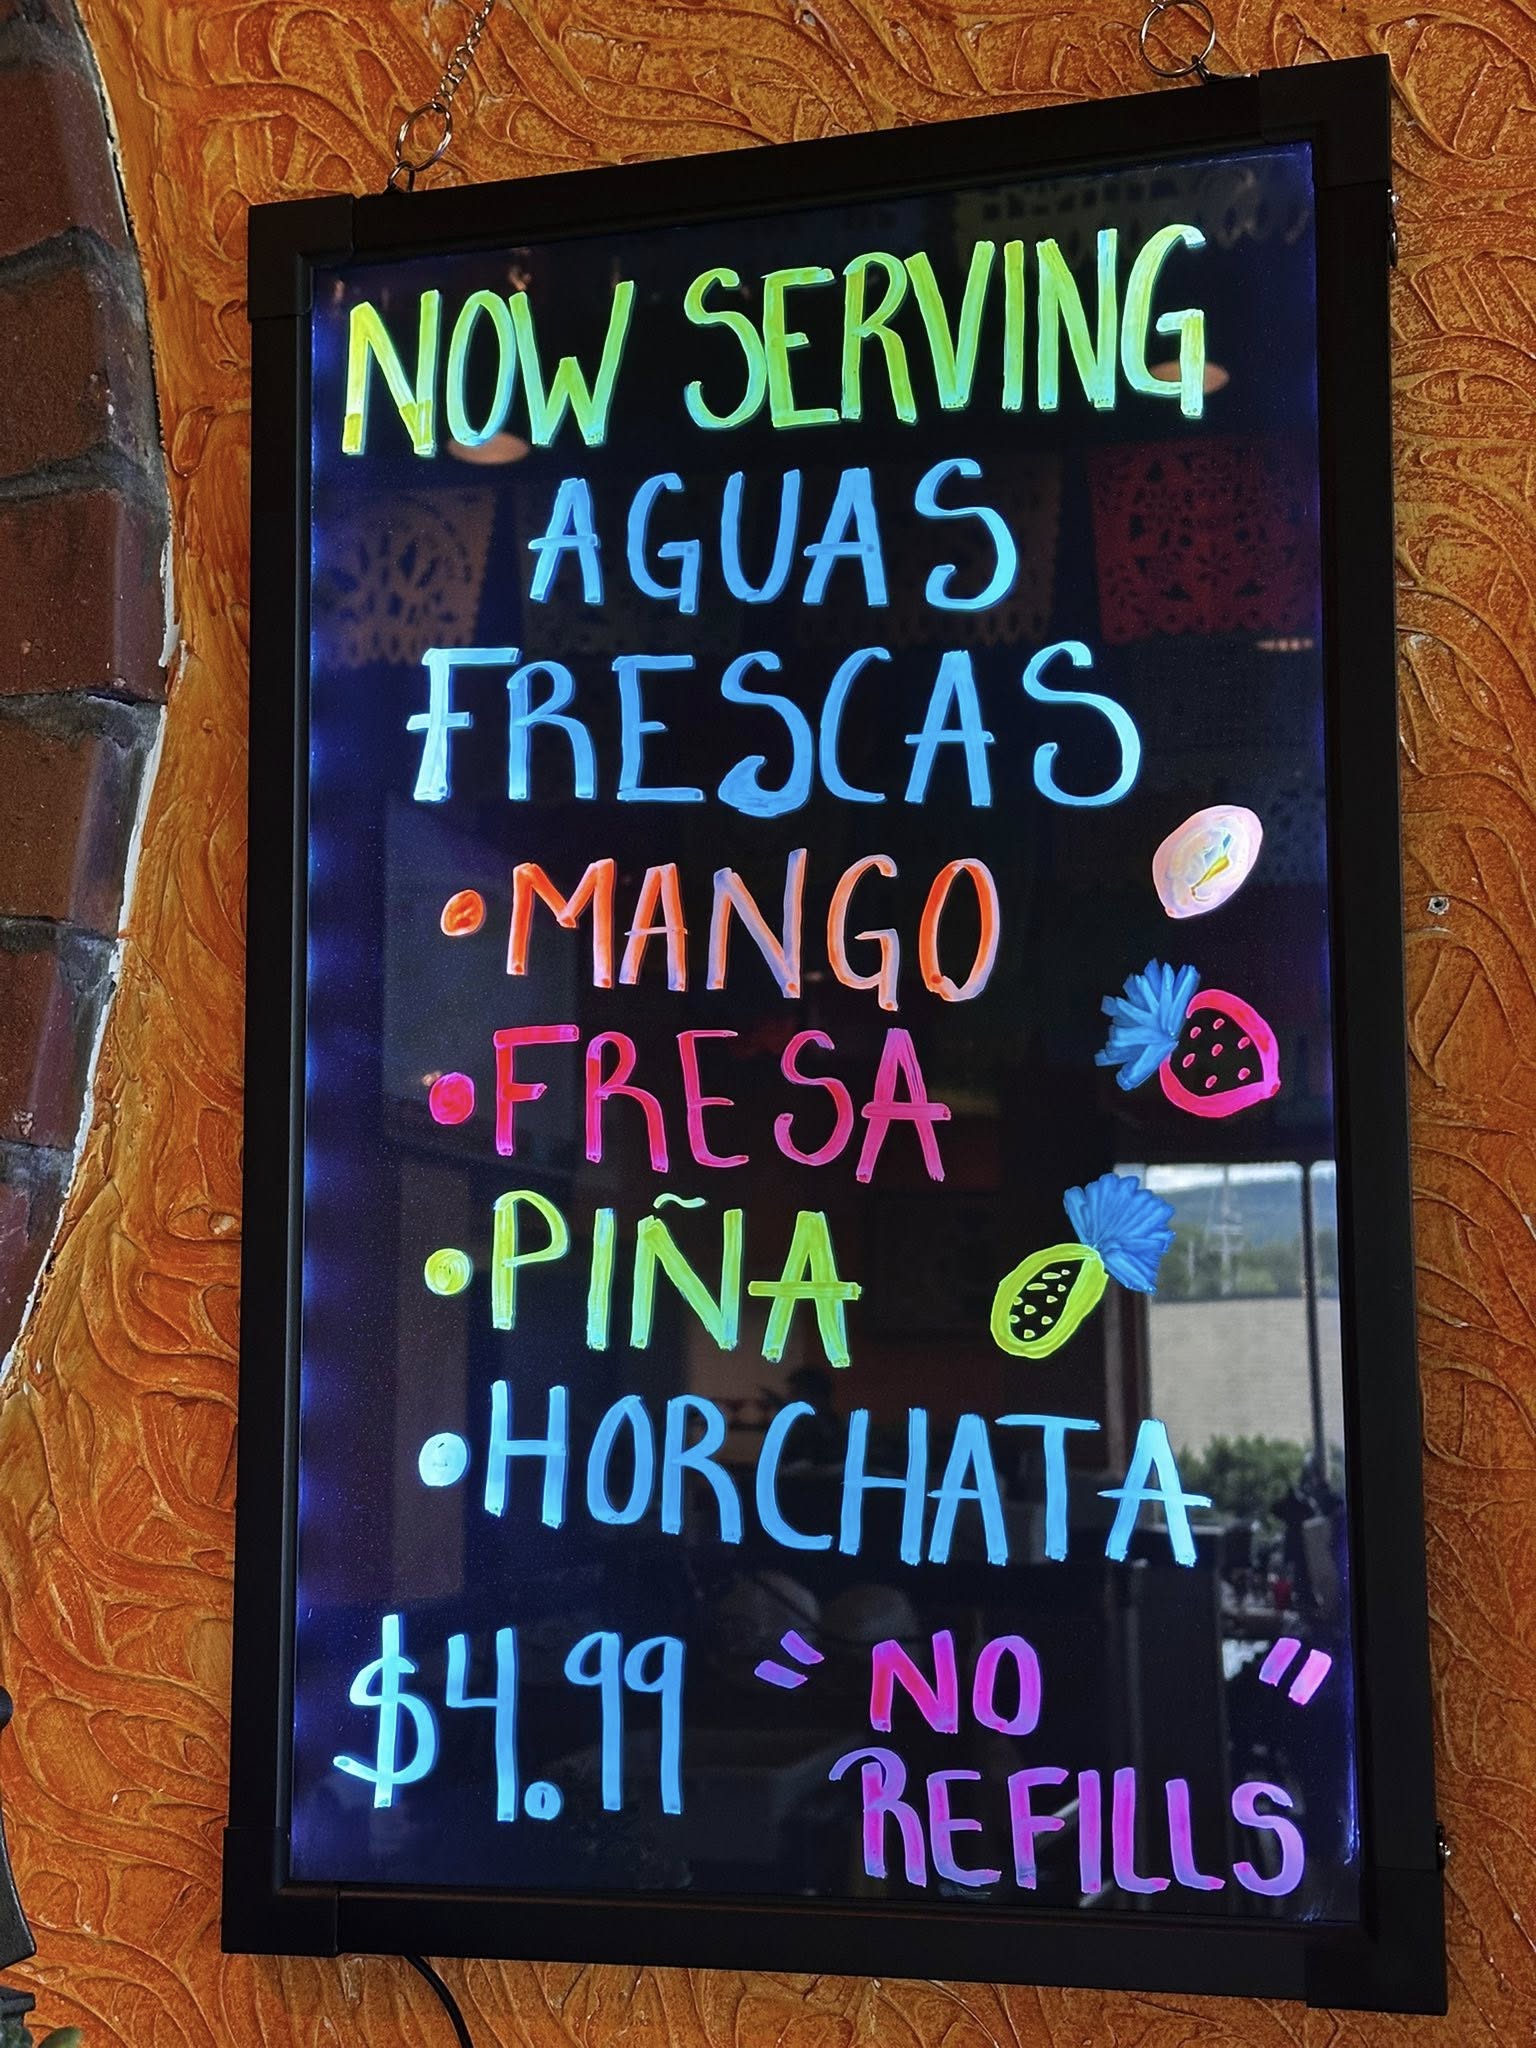 NOW SERVING
AGUAS
FRESCAS
• MANGO
• FRESA
• PIÑA
• HORCHATA
$4.99 "NO
REFILLS"